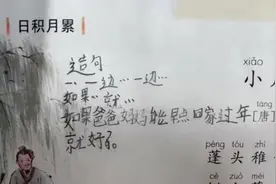 日积月累
造句
一边…一边…
如果…就…
如果爸爸妈妈能早点回家过年
就好了。
xiǎo
小
[唐]
péng tóu zhì
蓬头稚
cè zuò méi